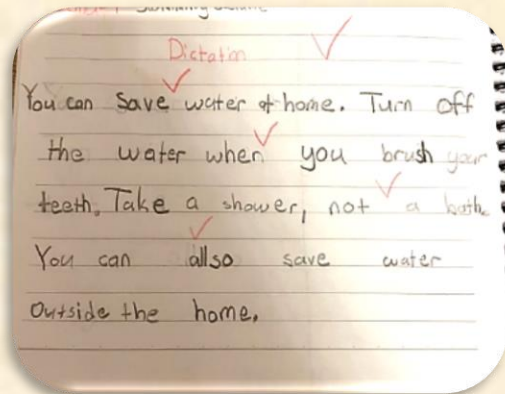 Dictation
You can Save water at home. Turn off
the water when you brush your
teeth. Take a shower, not a bath.
You can allso save water
Outside the home.